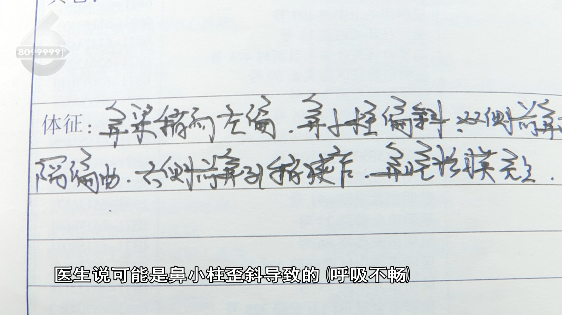 体征：鼻梁稍向左偏．鼻小柱偏斜．
隔偏曲．右侧前鼻孔稍狭窄．鼻腔粘膜
医生说可能是鼻小柱歪斜导致的（呼吸不畅）